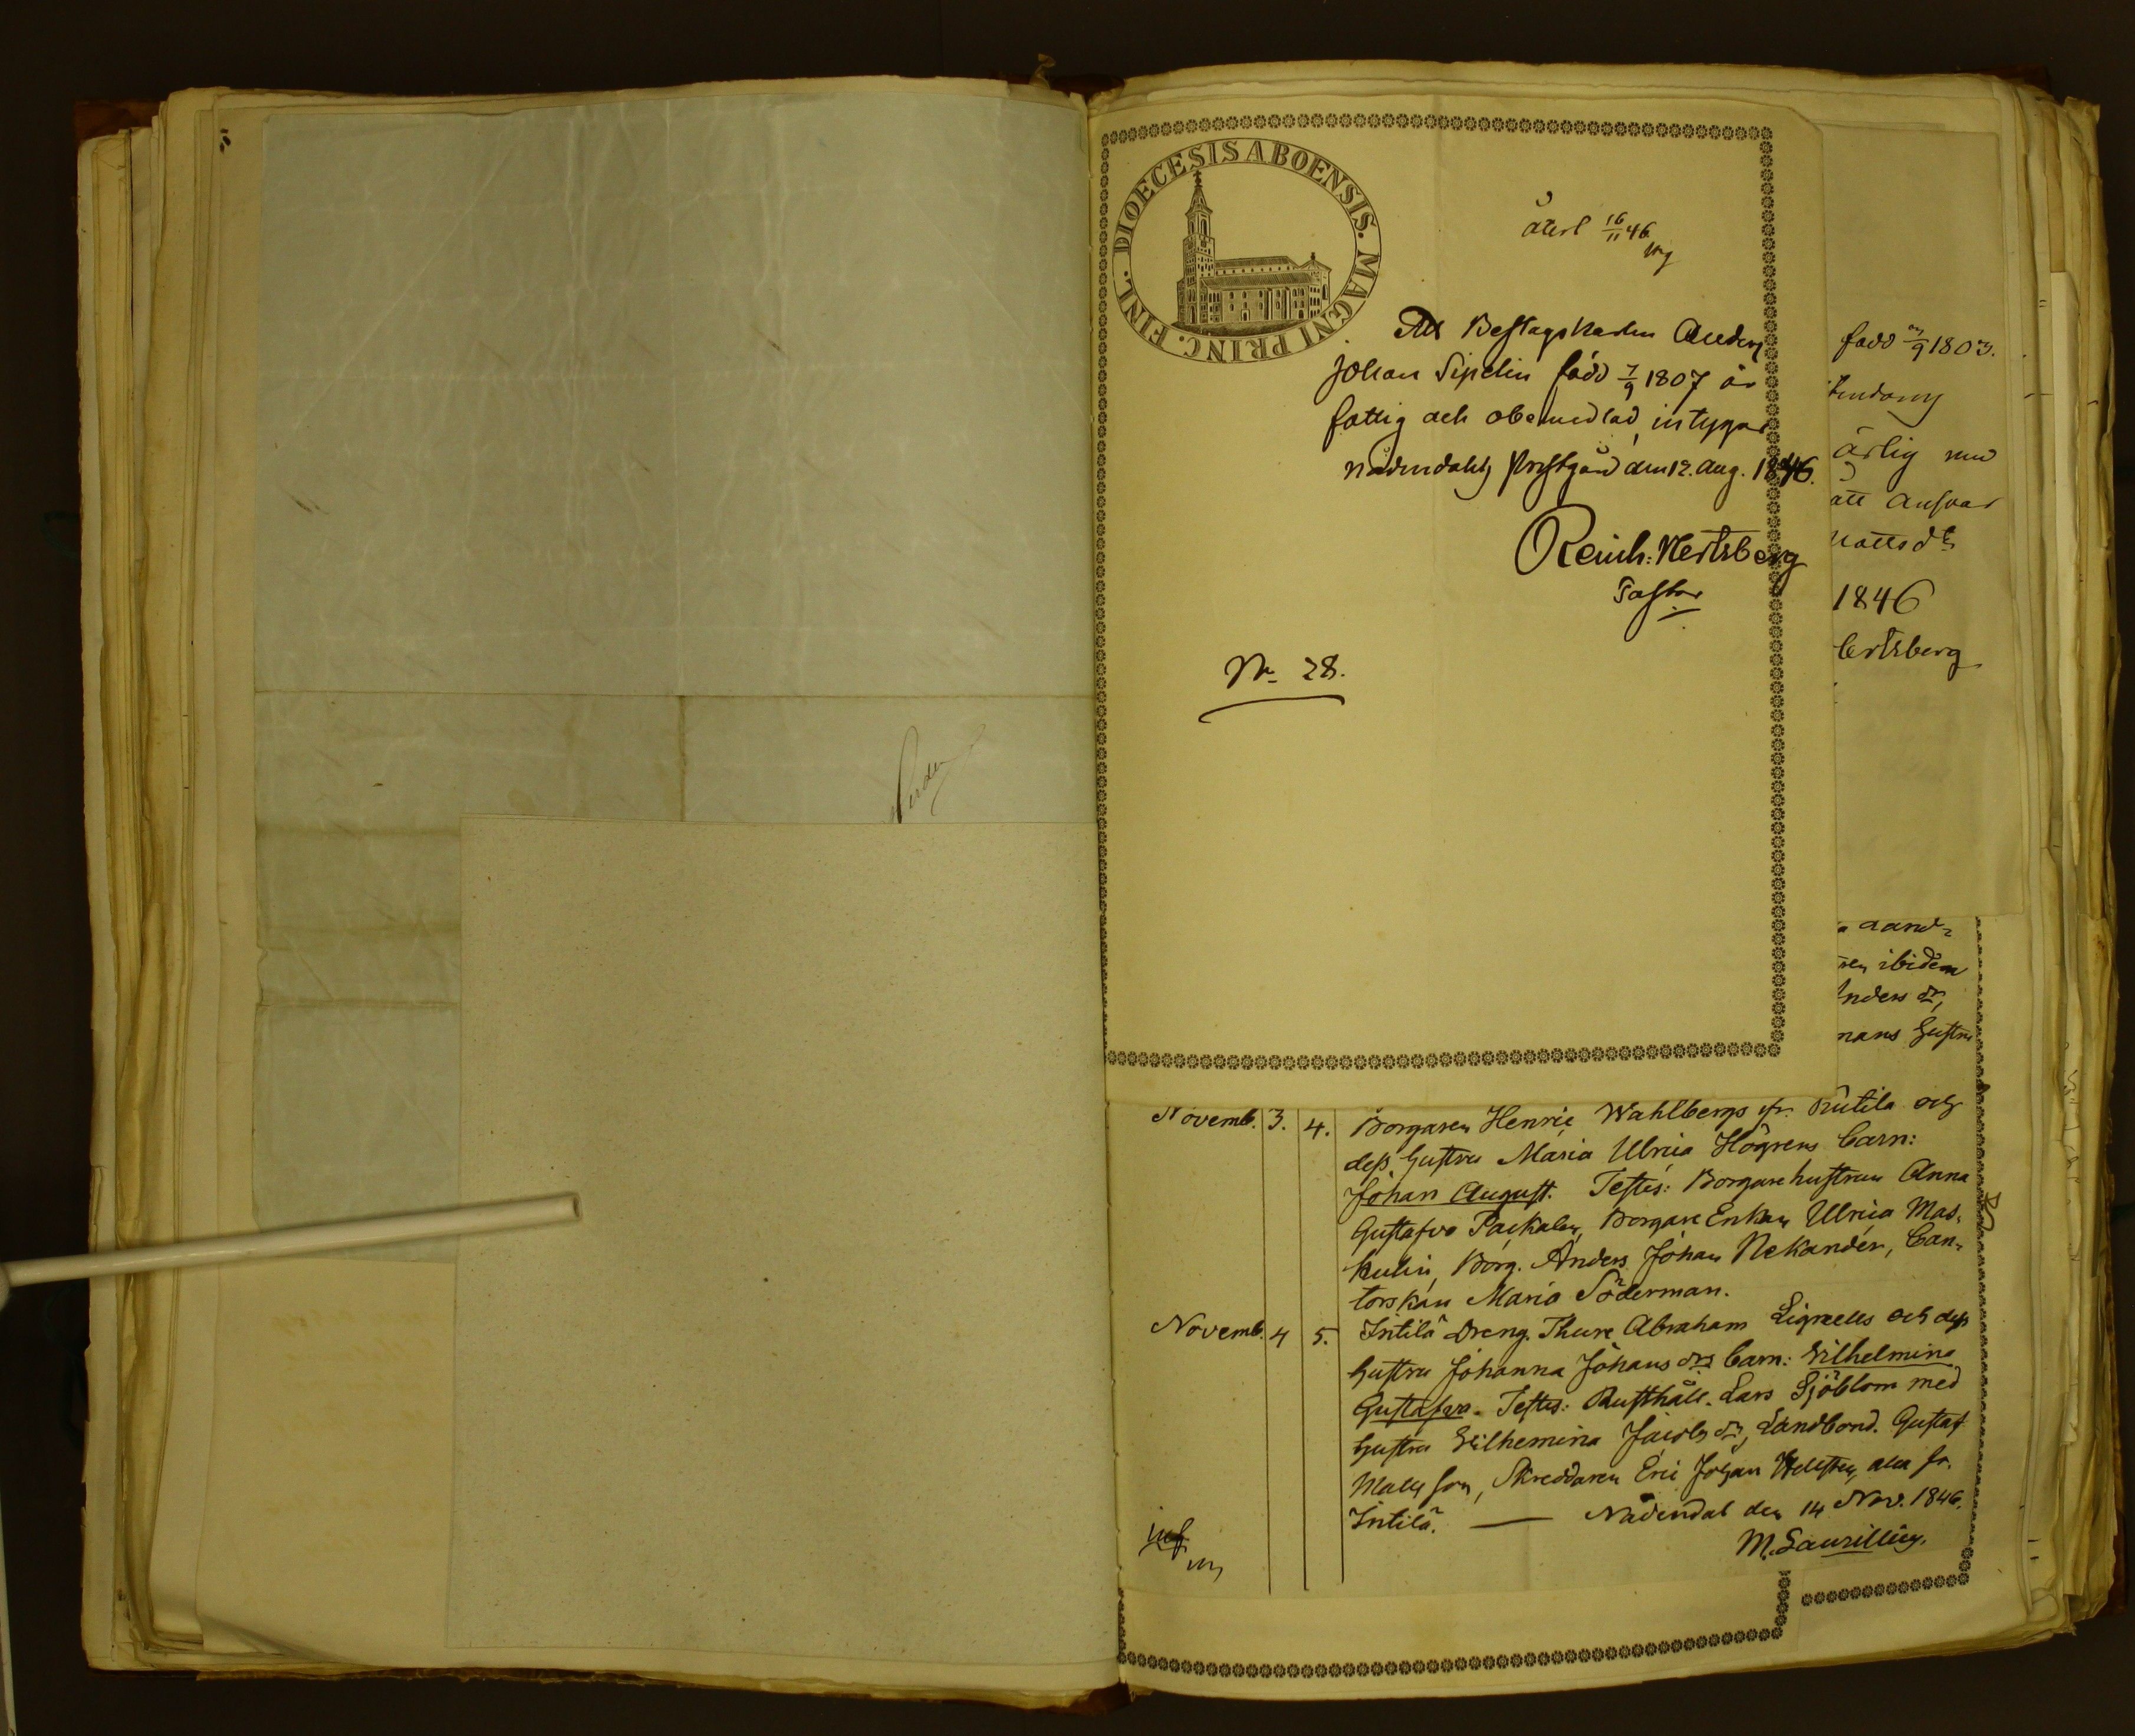 DIOECESIS ABOENSIS. MAGNI PRINC. FINL.
återl 16/11 46
Att Beslagskarlen Anders
Johan Sipelin född 7/9 1807 är
fattig och obemedlad, intygar
Nådendahls Prestgård den 12. Aug. 1846.
Reinh: Hertzberg
Pastor
No 28.
född /9 1803.
ärlig med
att ansvar
1846
ertsberg
ibidem
nders dr,
mans hustru
Novemb. 3. 4. Borgaren Henric Wahlbergs fr. Rutila och
dess hustru Maria Ulrica Högrens barn:
Johan August. Testes: Borgarehustrun Anna
Gustafva Packalen, Borgare Enkan Ulrica Mas-
kulin, Borg. Anders Johan Nekander, Can-
torskan Maria Söderman.
Novemb. 4 5. Intilä Dreng. Thure Abraham Lignells och dess
hustru Johanna Johans dr barn: Wilhelmina
Gustafva. Testes: Rusthåll. Lars Sjöblom med
hustru Wilhemina Jacobs dr, Landbond. Gustaf
Matts son, Skreddaren Eric Johan Hellsten, alla fr.
Intilä. — Nådendal den 14 Nov. 1846.
M. Laurillius.